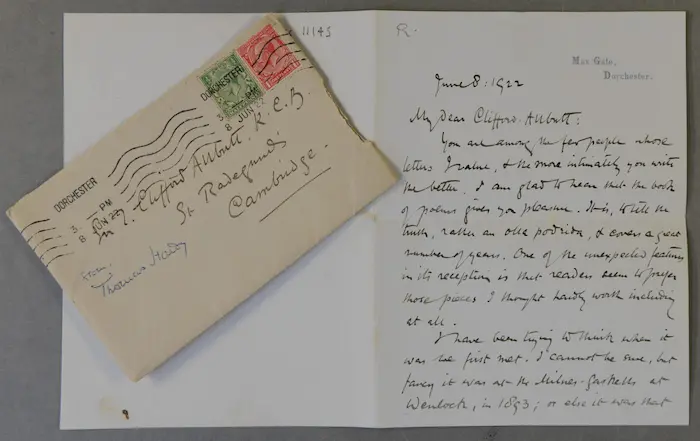 11145
R.
DORCHESTER
3 - PM
8 JUN 22
DORCHESTER
3 - PM
8 JUN 22
Sir T. Clifford Allbutt, K.C.B.
St Radegunds,
Cambridge.
From
Thomas Hardy
Max Gate,
Dorchester.
June 8: 1922
My Dear Clifford Allbutt:
You are among the few people whose
letters I value, & the more intimately you write
the better. I am glad to hear that the book
of poems gives you pleasure. It is, to tell the
truth, rather an olla podrida, & covers a great
number of years. One of the unexpected features
in its reception is that readers seem to prefer
those pieces I thought hardly worth including
at all.
I have been trying to think when it
was we first met. I cannot be sure, but
fancy it was at the Milnes-Gaskells at
Wenlock, in 1893; or else it was that